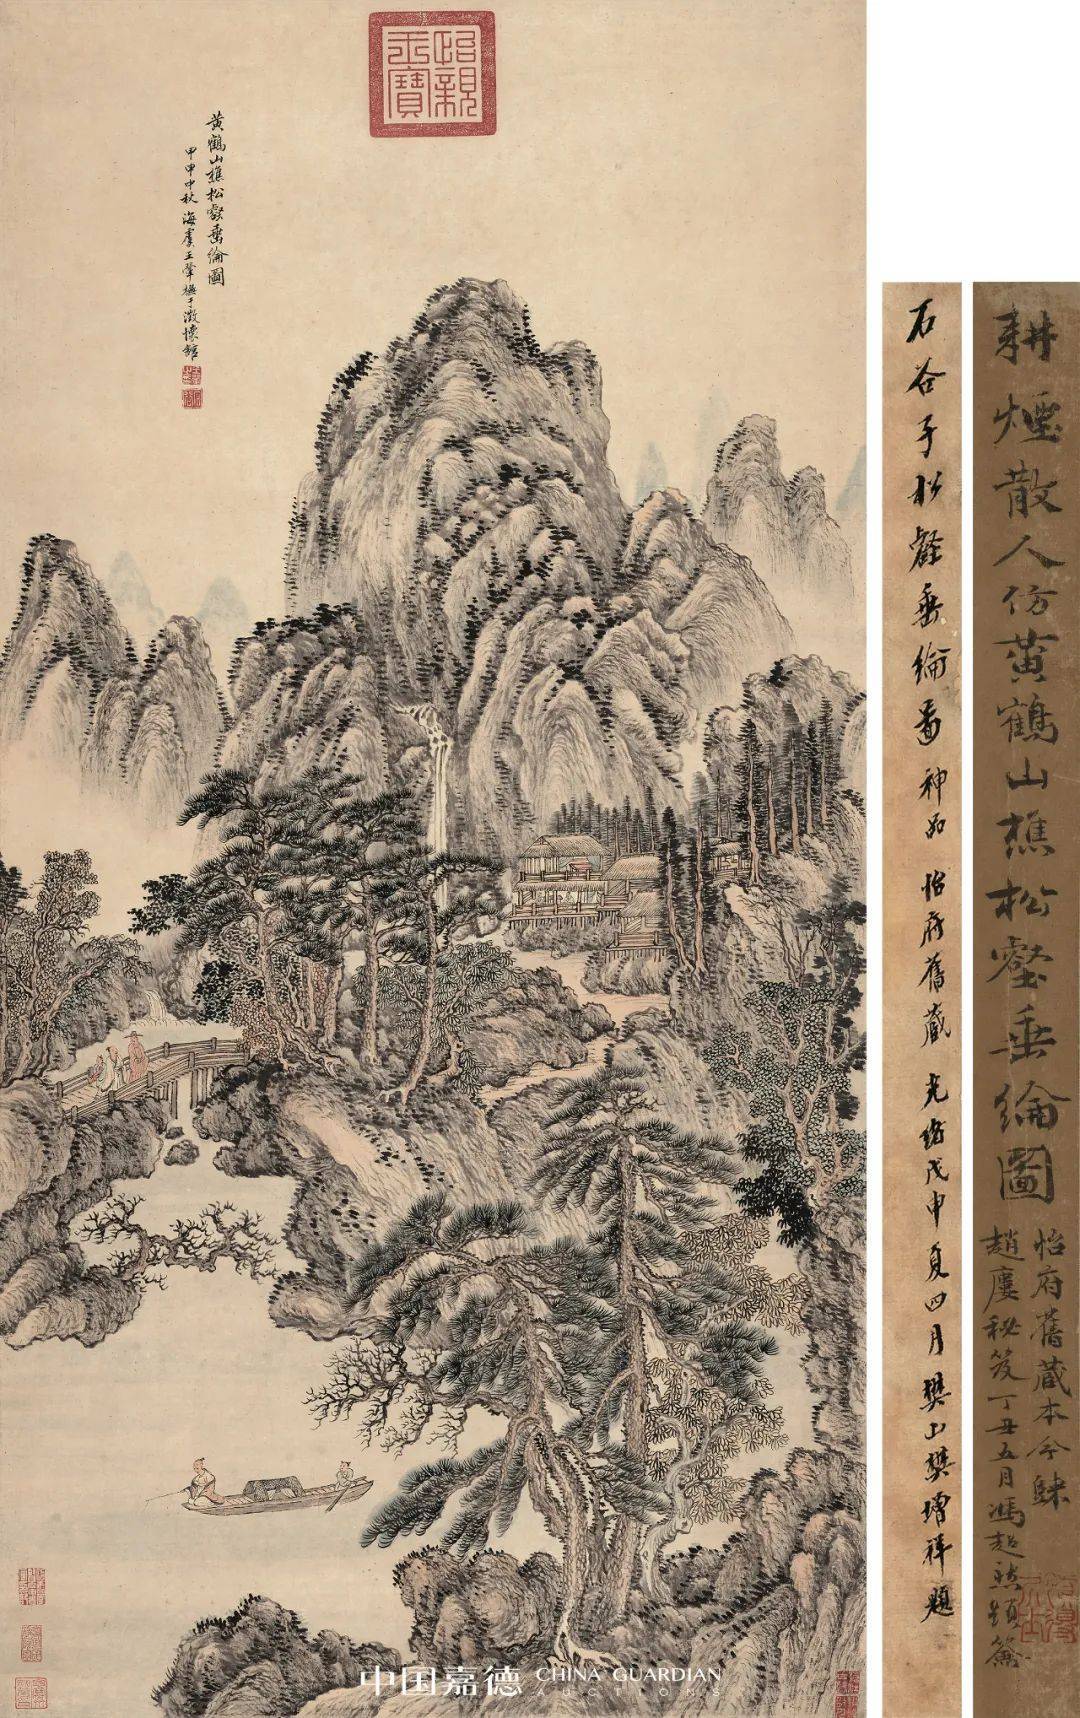 怡親王寶
黃鶴山樵松壑垂綸圖
甲申中秋海虞王翬橅于澂懷館
石谷子松壑垂綸圖神品怡府舊藏光緒戊申夏四月樊山樊增祥題
耕煙散人仿黃鶴山樵松壑垂綸圖
怡府舊藏本今歸
趙廔秘笈丁丑五月馮超然題籤
中国嘉德 CHINA GUARDIAN
AUCTIONS